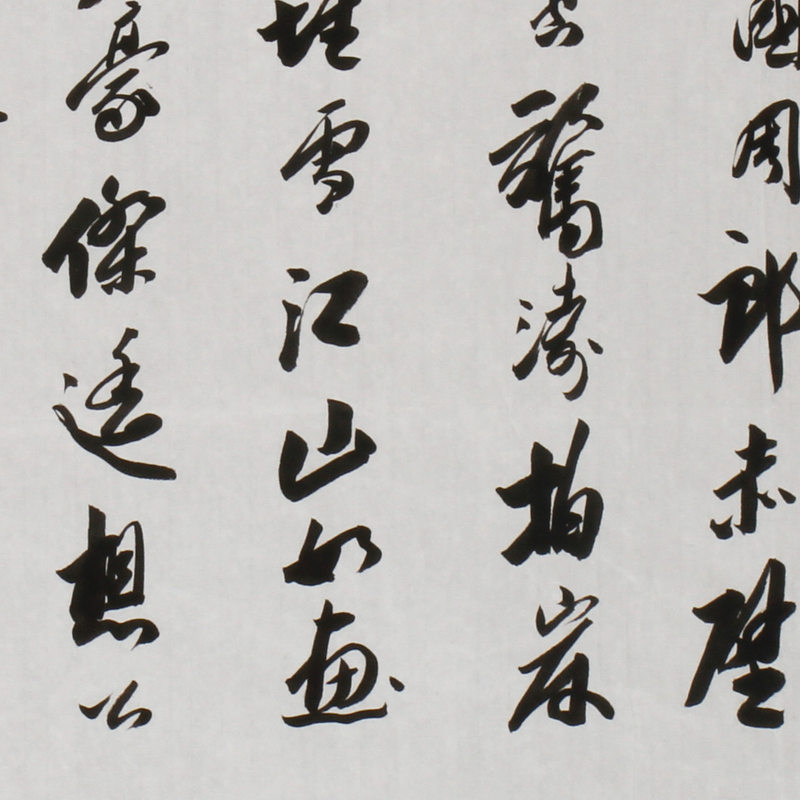 國周郎赤壁
驚濤拍岸
堆雪江山如畫
豪傑遥想公